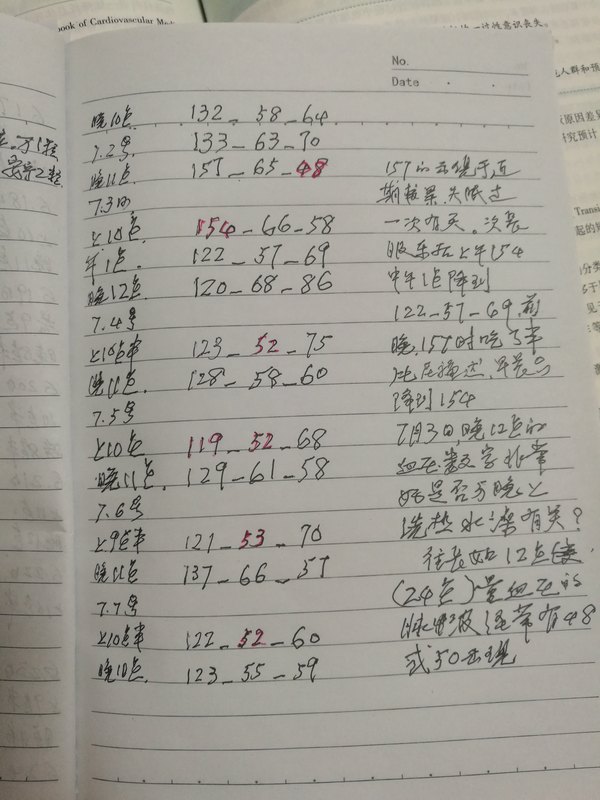 book of Cardiovascular Me
No.
Date
晚10点 132-58-64
7.2号 133-63-70
晚11点 157-65-48
7.3日
上10点 154-66-58
午1点 122-57-69
晚12点 120-68-86
7.4号
上10点半 123-52-75
晚11点 128-58-60
7.5号
上10点 119-52-68
晚11点 129-61-58
7.6号
上9点半 121-53-70
晚11点 137-66-57
7.7号
上10点半 122-52-60
晚10点 123-55-59
157的出现于近
期较累,失眠过
一次有关。次晨
服药后上午154
中午1点降到
122-57-69.前
晚,157时吃了半
早晨只
降到154
7月3日,晚12点的
血压数字非常
好是否与晚上
洗热水澡有关?
往常如12点
(24点)量血压的
经常有48
或50出现
Transi